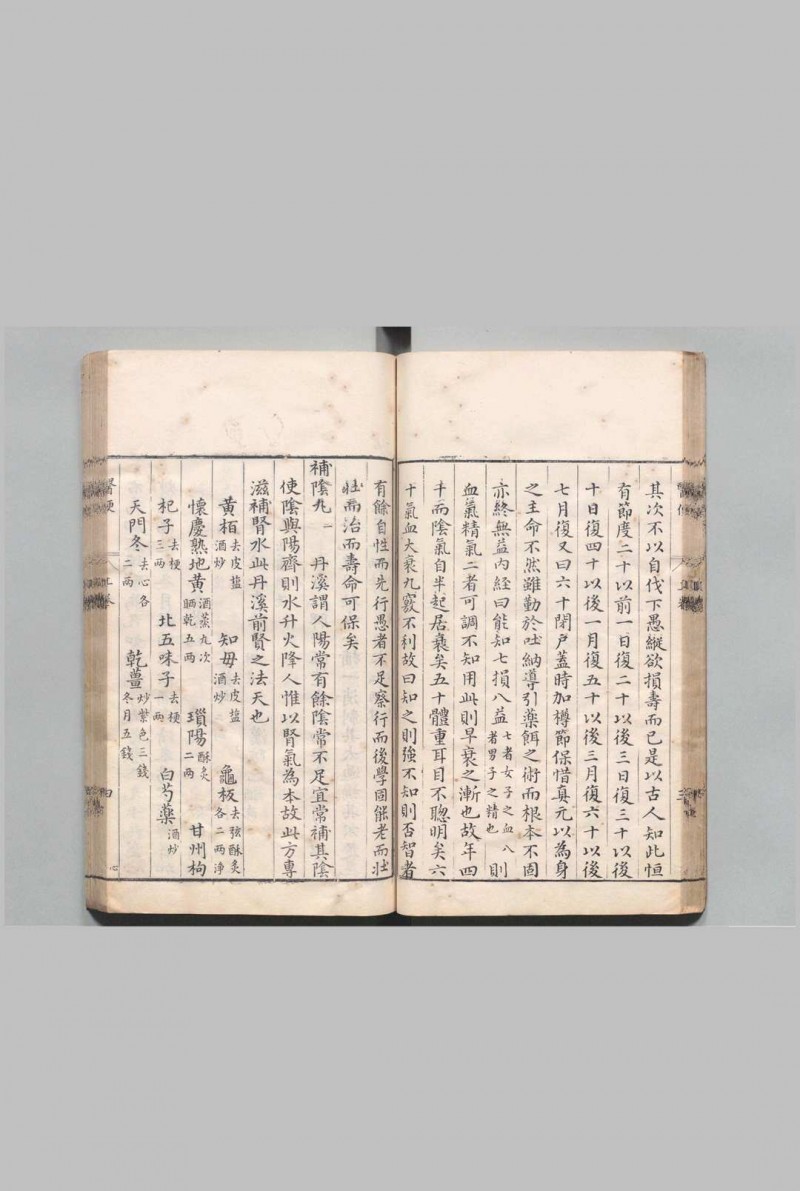 其次不以自伐下愚縱欲損壽而已是以古人知此恒
有節度二十以前一日復二十以後三日復三十以後
十日復四十以後一月復五十以後三月復六十以後
七月復又曰六十閉戶蓋時加樽節保惜真元以為身
之主命不然雖勤於吐納導引藥餌之術而根本不固
亦終無益內經曰能知七損八益七者女子之血八者男子之精也則
血氣精氣二者可調不知用此則早衰之漸也故年四
十而陰氣自半起居衰矣五十體重耳目不聰明矣六
十氣血大衰九竅不利故曰知之則強不知則否智者
有餘自性而先行愚者不足察行而後學固能老而壯
壯而治而壽命可保矣
補陰丸一 丹溪謂人陽常有餘陰常不足宜常補其陰
使陰與陽齊則水升火降人惟以腎氣為本故此方專
滋補腎水此丹溪前賢之法天也
黃栢去皮鹽酒炒 知母去皮鹽酒炒 龜板去弦酥炙各二兩淨
懷慶熟地黃酒蒸九次晒乾五兩 瑣陽酥炙二兩 甘州枸
杞子去梗三兩 北五味子去梗一兩 白芍藥酒炒
天門冬去心各二兩 乾薑炒紫色三錢冬月五錢
醫便
四